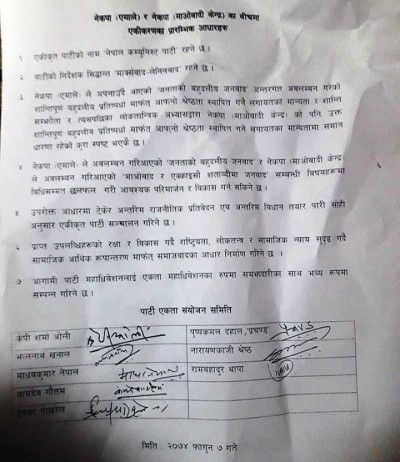 नेकपा (एमाले) र नेकपा (माओवादी केन्द्र) का बीचमा
एकीकरणका प्रारम्भिक आधारहरू
१ एकीकृत पार्टीको नाम 'नेपाल कम्युनिस्ट पार्टी' रहने छ ।
२ पार्टीको निर्देशक सिद्धान्त 'मार्क्सवाद-लेनिनवाद' रहने छ ।
३ नेकपा (एमाले) ले अपनाउँदै आएको 'जनताको बहुदलीय जनवाद' अन्तरगत अवलम्बन गरेको
शान्तिपूर्ण बहुदलीय प्रतिष्पर्धा मार्फत् आफ्नो श्रेष्ठता स्थापित गर्ने लगायतका मान्यता र शान्ति
सम्झौता र त्यसपछिका लोकतान्त्रिक अभ्यासद्वारा नेकपा (माओवादी केन्द्र) को पनि उक्त
शान्तिपूर्ण बहुदलीय प्रतिष्पर्धा मार्फत् आफ्नो श्रेष्ठता स्थापित गर्ने लगायतका मान्यतामा समान
धारणा रहेको कुरा स्पष्ट भएकै छ ।
४ नेकपा (एमाले) ले अवलम्बन गरिआएको 'जनताको बहुदलीय जनवाद' र नेकपा (माओवादी केन्द्र)
ले अवलम्बन गरिआएको 'माओवाद र एक्काइसौं शताब्दीमा जनवाद' सम्बन्धी विषयहरूमा
विधिसम्मत छलफल गरी आवश्यक परिमार्जन र विकास गर्न सकिने छ ।
५ उपरोक्त आधारमा टेकेर अन्तरिम राजनीतिक प्रतिवेदन एवं अन्तरिम विधान तयार पारी सोही
अनुसार एकीकृत पार्टी सञ्चालन गरिने छ ।
६ प्राप्त उपलब्धिहरूको रक्षा र विकास गर्दै राष्ट्रियता, लोकतन्त्र र सामाजिक न्याय सुदृढ गर्दै
सामाजिक आर्थिक रूपान्तरण मार्फत् समाजवादका आधार निर्माण गरिने छ ।
७ आगामी पार्टी महाधिवेशनलाई एकता महाधिवेशनका रुपमा समझदारीका साथ भव्य रूपमा
सम्पन्न गरिने छ ।
पार्टी एकता संयोजन समिति
केपी शर्मा ओली पुष्पकमल दहाल, प्रचण्ड
झलनाथ खनाल नारायणकाजी श्रेष्ठ
माधवकुमार नेपाल रामबहादुर थापा
वामदेव गौतम
ईश्वर पोखरेल
मिति : २०७४ फागुन ७ गते